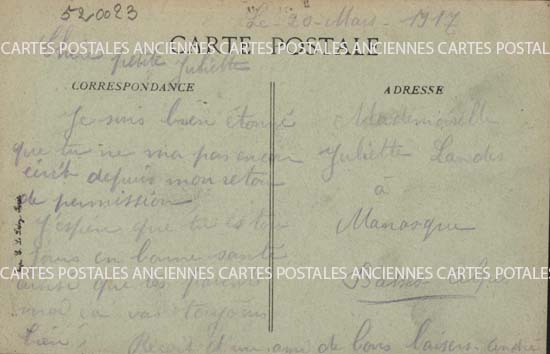 520023
Le 20 Mars 1917
CARTE POSTALE
Chère petite Juliette
CORRESPONDANCE
Je suis bien étonné
que tu ne m'a pas encore
écrit depuis mon retou
de permission
J'espère que tu es tou
jours en bonne santé
ainsi que tes parents
moi ca va toujours
bien
Reçois d'un ami de bons baisers André
ADRESSE
Mademoiselle
Juliette Landes
à
Manosque
Basses Alpes
CARTES POSTALES ANCIENNES CARTES POSTALES ANCIENNES CARTES POSTALES
CARTES POSTALES ANCIENNES CARTES POSTALES ANCIENNES CARTES POSTALES